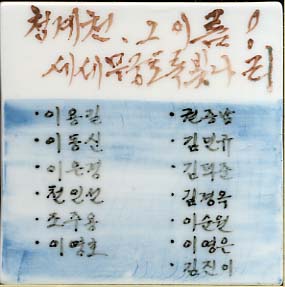 청계천, 그 이름!
세세무궁토록 빛나리
·이용길
·이동신
·이은경
·천인선
·조주용
·이명호
·전종남
·김민규
·김덕준
·김경옥
·이순원
·이영은
·김진이